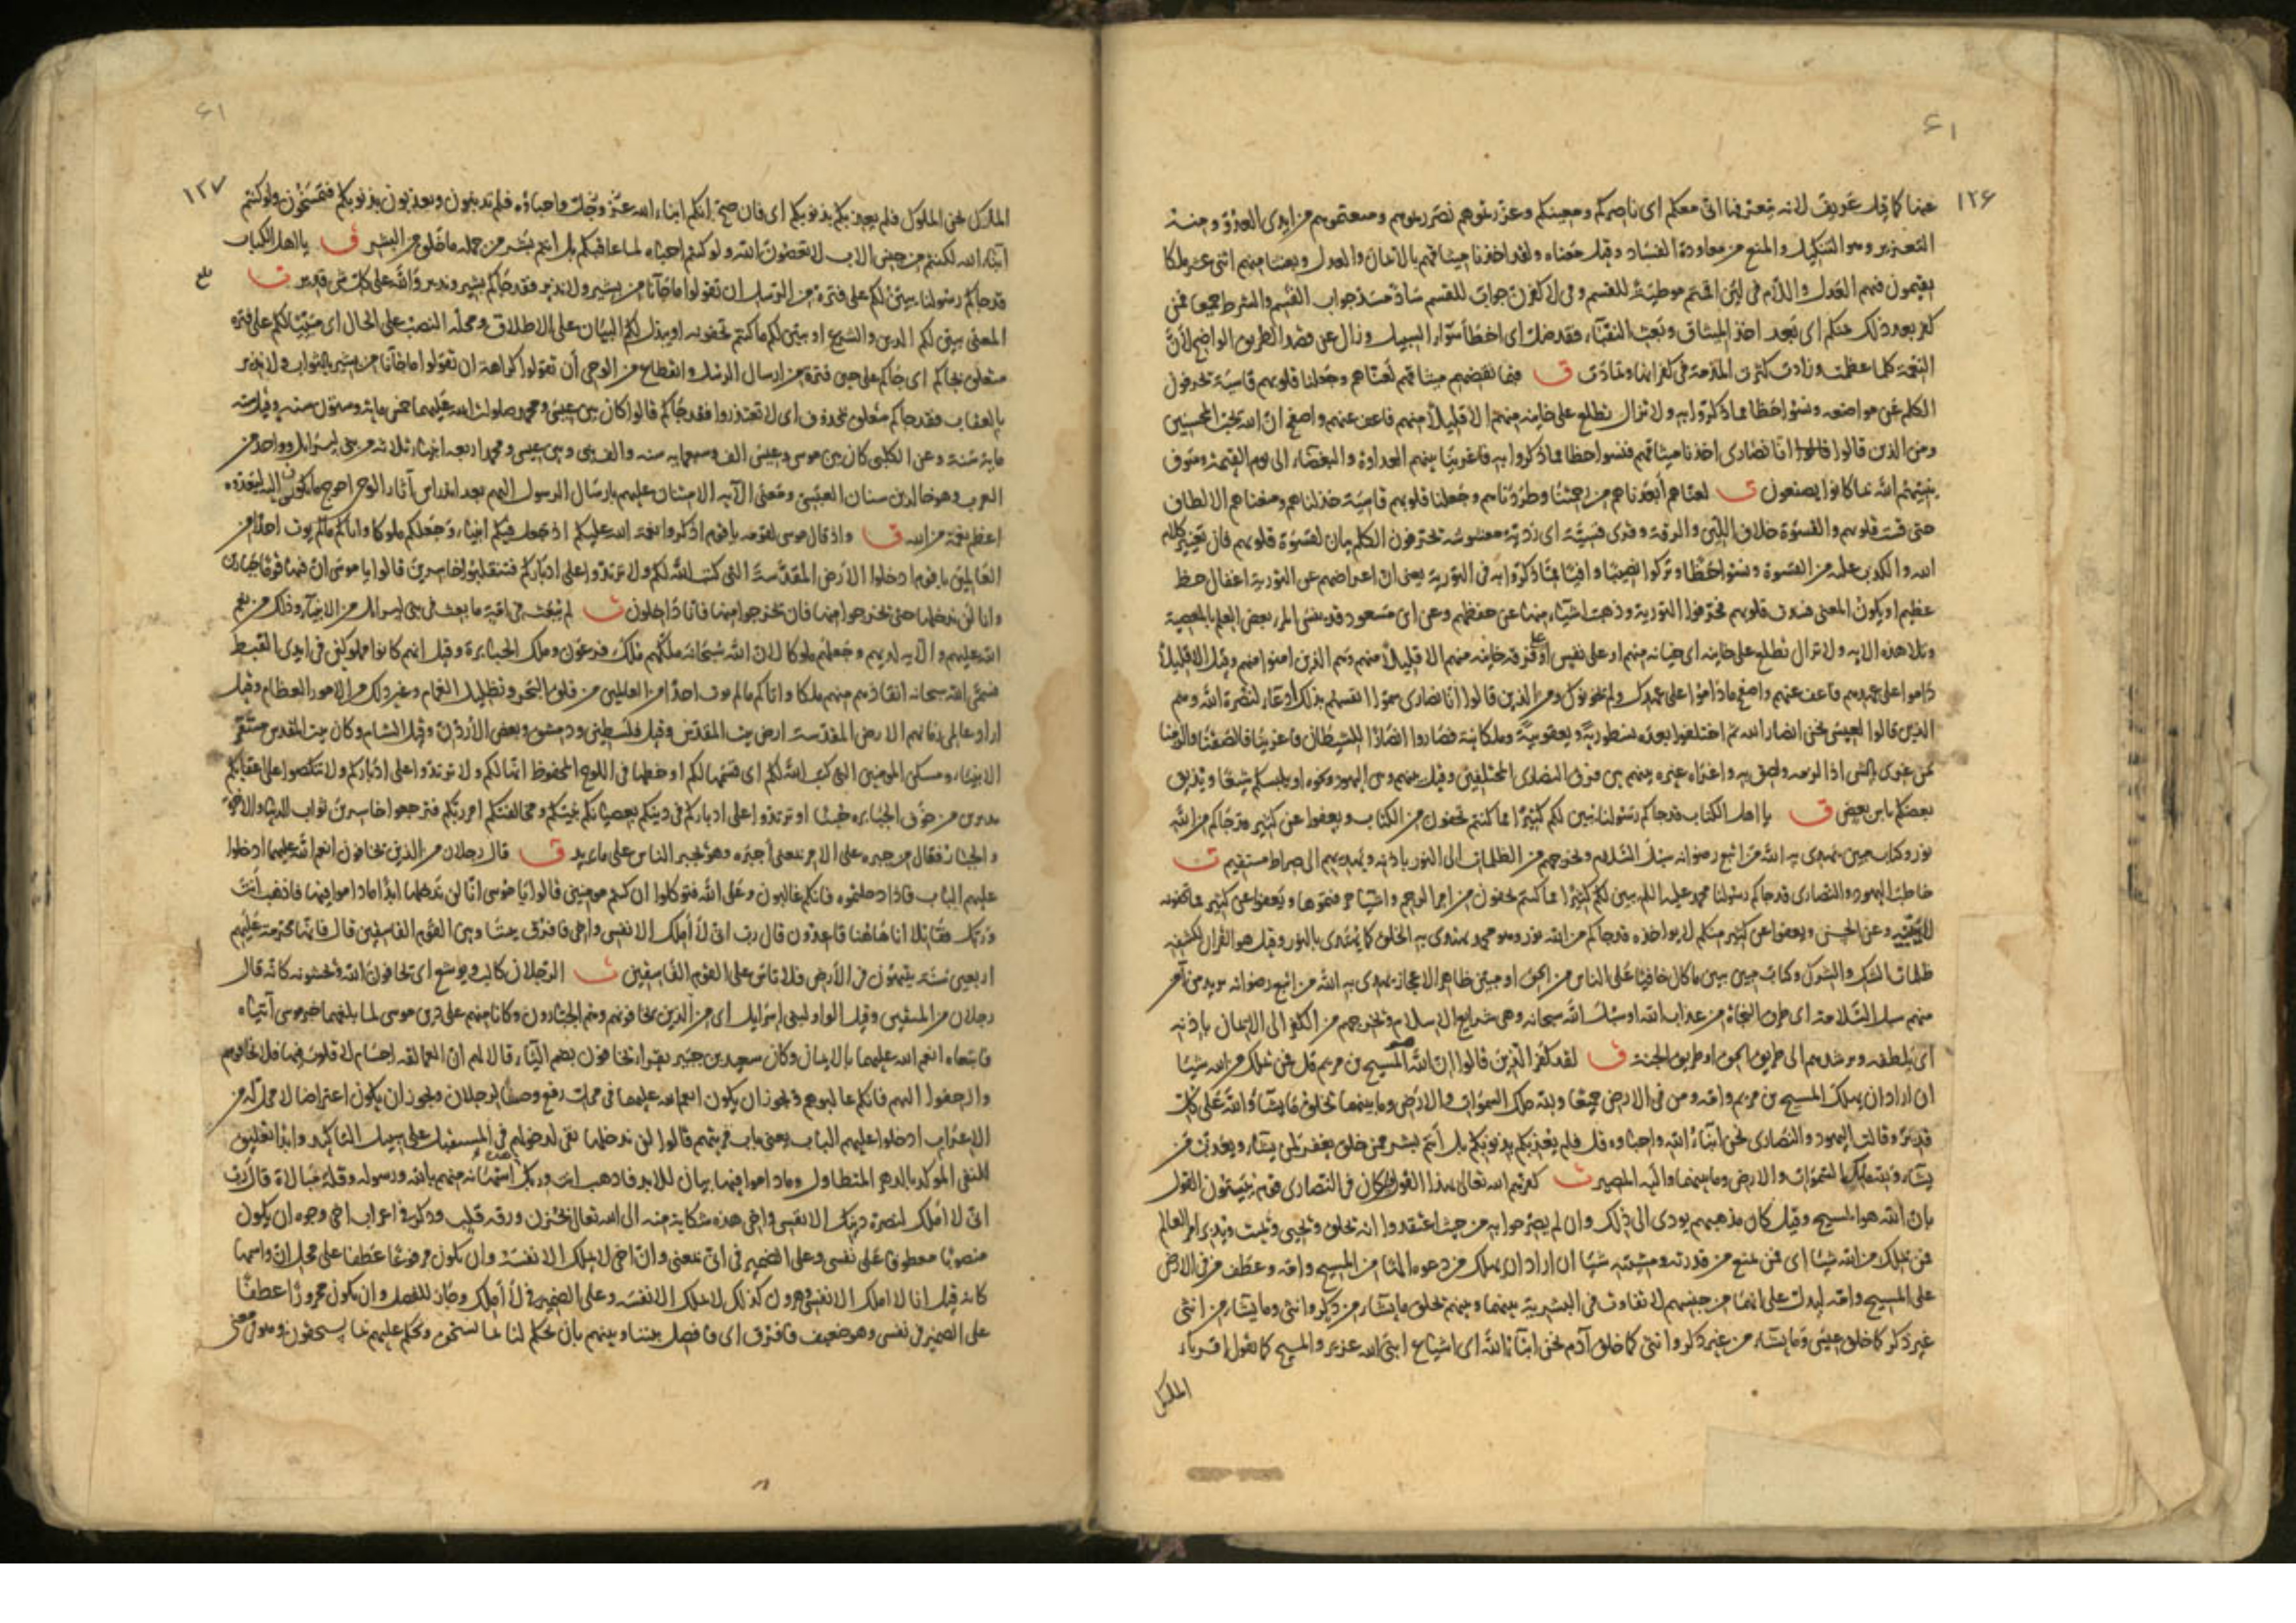 ۶۱
۱۲۶
عنها كما قيل عريف لانه يتعرفها انى معكم اى ناصركم ومعينكم وعزرتموهم نصرتموهم ومنعتموهم من ايدى العدو ومنه
التعزير وهو التنكيل والمنع من معاودة الفساد وقيل معناه ولقد اخذنا ميثاقهم بالايمان والعدل وبعثنا منهم اثنى عشر ملكا
يقيمون فيهم العدل واللام فى لئن اقمتم موطئة للقسم وفى لاكفرن جواب للقسم ساد مسد جواب القسم والشرط جميعا فمن
كفر بعد ذلك منكم اى بعد اخذ الميثاق وبعث النقباء فقد ضل اى اخطأ سواء السبيل وزال عن قصد الطريق الواضح لان
النعمة كلما عظمت وزادت كثرت المذمة فى كفرانها وتمادت ق فبما نقضهم ميثاقهم لعناهم وجعلنا قلوبهم قاسية يحرفون
الكلم عن مواضعه ونسوا حظا مما ذكروا به ولا تزال تطلع على خاينة منهم الا قليلا منهم فاعف عنهم واصفح ان الله يحب المحسنين
ومن الذين قالوا انا نصارى اخذنا ميثاقهم فنسوا حظا مما ذكروا به فاغرينا بينهم العداوة والبغضاء الى يوم القيمة وسوف
ينبئهم الله بما كانوا يصنعون ت لعناهم ابعدناهم من رحمتنا وطردناهم وجعلنا قلوبهم قاسية خذلناهم ومنعناهم الالطاف
حتى قست قلوبهم والقسوة خلاف اللين والرقة وقرى قسية اى ردية مغشوشة يحرفون الكلم بيان لقسوة قلوبهم فان تغيير كلام
الله والكذب عليه من القسوة ونسوا حظا وتركوا نصيبا وافيا مما ذكروا به فى التورية يعنى ان اعراضهم عن التورية اغفال حظ
عظيم او يكون المعنى فسدت قلوبهم فحرفوا التورية وذهبت اشياء منها عن حفظهم وعن ابن مسعود قد ينسى المرء بعض العلم بالمعصية
وتلا هذه الاية ولا تزال تطلع على خاينة اى خيانة منهم او على نفس او فرقة خاينة منهم الا قليلا منهم وهم الذين امنوا منهم وقيل الا قليلا
داموا على عهدهم فاعف عنهم واصفح ما داموا على عهدك ولم يخونوك ومن الذين قالوا انا نصارى سموا انفسهم بذلك ادعاء لنصرة الله وهم
الذين قالوا لعيسى نحن انصار الله ثم اختلفوا بعده نسطورية ويعقوبية وملكانية فصاروا انصارا للشيطان فاغرينا فالصقنا والزمنا
من غرى بالشى اذا لزمه ولصق به واغراه غيره بينهم بين فرق النصارى المختلفين وقيل بينهم وبين اليهود ونحوه او يلبسكم شيعا ويذيق
بعضكم باس بعض ق يا اهل الكتاب قد جاكم رسولنا يبين لكم كثيرا مما كنتم تخفون من الكتاب ويعفوا عن كثير قد جاكم من الله
نور وكتاب مبين يهدى به الله من اتبع رضوانه سبل السلام ويخرجهم من الظلمات الى النور باذنه ويهديهم الى صراط مستقيم ت
خاطب اليهود والنصارى قد جاكم رسولنا محمد عليه السلم يبين لكم كثيرا مما كنتم تخفون من امر الرجم واشياء حرفتموها ويعفوا عن كثير مما تخفونه
لا يبينه وعن الحسن ويعفوا عن كثير منكم لا يواخذه قد جاكم من الله نور وهو محمد يهتدى به الخلق كما يهتدى بالنور وقيل هو القران لكشفه
ظلمات الشك والشرك وكتاب مبين يبين ما كان خافيا على الناس من الحق او مبين ظاهر الاعجاز يهدى به الله من اتبع رضوانه يريد من آمن
منهم سبل السلامة اى طرق النجاة من عذاب الله او سبل الله سبحانه وهى شرايع الاسلام ويخرجهم من الكفر الى الايمان باذنه
اى بلطفه ويرشدهم الى طريق الحق او طريق الجنة ق لقد كفر الذين قالوا ان الله هو المسيح بن مريم قل فمن يملك من الله شيئا
ان اراد ان يهلك المسيح بن مريم وامه ومن فى الارض جميعا ولله ملك السموات والارض وما بينهما يخلق ما يشاء والله على كل
قدير وقالت اليهود والنصارى نحن ابناء الله واحباوه قل فلم يعذبكم بذنوبكم بل انتم بشر ممن خلق يغفر لمن يشاء ويعذب من
يشاء ولله ملك السموات والارض وما بينهما واليه المصير ت كفرهم الله تعالى بهذا القول كان فى النصارى قوم يبتون القول
بان الله هو المسيح وقيل كان مذهبهم يودى الى ذلك وان لم يصرحوا به من حيث اعتقدوا انه يخلق ويحيى ويميت ويدبر امر العالم
فمن يملك من الله شيئا اى فمن يمنع من قدرته ومشيته شيئا ان اراد ان يهلك من دعوه الها من المسيح وامه وعطف من فى الارض
على المسيح وامه ليدل على انهما من جنسهم لا تفاوت فى البشرية بينهما وبينهم يخلق ما يشاء من ذكر وانثى وما يشاء من انثى
غير ذكر كما خلق عيسى وما يشاء من غير ذكر وانثى كما خلق آدم نحن ابناء الله اى اشياع ابنى الله عزير والمسيح كما يقول اقرباء
الملك
۶۱
۱۲۷
الملك نحن الملوك فلم يعذبكم بذنوبكم اى فان صح انكم ابناء الله عز وجل واحباؤه فلم تذنبون وتعذبون بذنوبكم فتمسخون ولو كنتم
ابناء الله لكنتم من جنس الاب لا تعصون الله ولو كنتم احباءه لما عاقبكم بل انتم بشر من جملة ما خلق من البشر ق يا اهل الكتاب
قد جاكم رسولنا يبين لكم على فترة من الرسل ان تقولوا ما جاءنا من بشير ولا نذير فقد جاكم بشير ونذير والله على كل شى قدير ت
المعنى يبين لكم الدين والشرع او يبين لكم ما كنتم تخفونه او يبذل لكم البيان على الاطلاق ومحله النصب على الحال اى مبينا لكم على فترة
متعلق بجاكم اى جاكم على حين فترة من ارسال الرسل وانقطاع من الوحى أن تقولوا كراهة ان تقولوا ما جاءنا من بشير بالثواب ولا نذير
بالعقاب فقد جاكم متعلق بمحذوف اى لا تعتذروا فقد جاكم قالوا كان بين عيسى ومحمد صلوات الله عليهما خمس ماية وستون سنة وقيل ستة
ماية سنة وعن الكلبى كان بين موسى وعيسى الف وسبعماية سنة والف نبى وبين عيسى ومحمد اربعة انبياء ثلاثة من بنى اسرايل وواحد من
العرب وهو خالد بن سنان العبسى ومعنى الآية الامتنان عليهم بارسال الرسول اليهم بعد اندراس آثار الوحى احوج ما يكون اليه ليعدوه
اعظم نعمة من الله ق واذ قال موسى لقومه يا قوم اذكروا نعمة الله عليكم اذ جعل فيكم انبياء وجعلكم ملوكا واتاكم ما لم يوت احدا من
العالمين يا قوم ادخلوا الارض المقدسة التى كتب الله لكم ولا ترتدوا على ادباركم فتنقلبوا خاسرين قالوا يا موسى ان فيها قوما جبارين
وانا لن ندخلها حتى يخرجوا منها فان يخرجوا منها فانا داخلون ت لم يبعث فى امة ما بعث فى بنى اسرايل من الانبياء وذلك من نعم
الله عليهم والآية لديهم وجعلهم ملوكا لان الله سبحانه ملكهم ملك فرعون وملك الجبابرة وقيل انهم كانوا مملوكين فى ايدى القبط
فسمى الله سبحانه انقاذهم منهم ملكا واتاكم ما لم يوت احدا من العالمين من فلق البحر وتظليل الغمام وغير ذلك من الامور العظام وقيل
اراد عالمى زمانهم الارض المقدسة ارض بيت المقدس وقيل فلسطين ودمشق وبعض الأردن وقيل الشام وكان بيت المقدس مستقر
الانبياء ومسكن المومنين التى كتب الله لكم اى قسمها لكم او خطها فى اللوح المحفوظ انها لكم ولا ترتدوا على ادباركم ولا تنكصوا على اعقابكم
مدبرين من خوف الجبابرة جبنا او ترتدوا على ادباركم فى دينكم بعصيانكم نبيكم ومخالفتكم امر ربكم فترجعوا خاسرين ثواب الدنيا والاخرة
والجبار فعال من جبره على الامر بمعنى أجبره وهو يجبر الناس على ما يريد ق قال رجلان من الذين يخافون انعم الله عليهما ادخلوا
عليهم الباب فاذا دخلتموه فانكم غالبون وعلى الله فتوكلوا ان كنتم مومنين قالوا يا موسى انا لن ندخلها ابدا ما داموا فيها فاذهب أنت
وربك فقاتلا انا هاهنا قاعدون قال رب انى لا أملك الا نفسى واخى فافرق بيننا وبين القوم الفاسقين قال فانها محرمة عليهم
اربعين سنة يتيهون فى الأرض فلا تاس على القوم الفاسقين ت الرجلان كالب ويوشع اى يخافون الله ويخشونه كانه قال
رجلان من المتقين وقيل الواو لبنى اسرايل اى من الذين يخافونهم وهم الجبارون وكانا منهم على دين موسى لما بلغهما خبر موسى آتياه
فاتبعاه انعم الله عليهما بالايمان وكان سعيد بن جبير يقرا يخافون بضم الياء قالا لهم ان العمالقة اجسام لا قلوب فيها فلا تخافوهم
وازحفوا اليهم فانكم غالبوهم ويجوز ان يكون انعم الله عليهما فى محل رفع وصفا لرجلان ويجوز ان يكون اعتراضا لا محل له من
الاعراب ادخلوا عليهم الباب يعنى باب قريتهم قالوا لن ندخلها نفى لدخولهم فى المستقبل على سبيل التاكيد وابدا تعليق
للنفى المؤكد بالدهر المتطاول وما داموا فيها بيان للابد فاذهب انت وربك استهانة منهم بالله ورسوله وقلة مبالاة قال رب
انى لا املك لنصرة دينك الا نفسى واخى هذه شكاية منه الى الله تعالى بحزن ورقة قلب وذكر فى اعراب اخى وجوه ان يكون
منصوبا معطوفا على نفسى وعلى الضمير فى انى بمعنى وان اخى لا يملك الا نفسه وان يكون مرفوعا عطفا على محل ان واسمها
كانه قيل انا لا املك الا نفسى وهرون كذلك لا يملك الا نفسه وعلى الضمير فى لا أملك وجاز للفصل وان يكون مجرورا عطفا
على الضمير فى نفسى وهو ضعيف فافرق اى فافصل بيننا وبينهم بان تحكم لنا بما نستحق وتحكم عليهم بما يستحقون وهو فى معنى